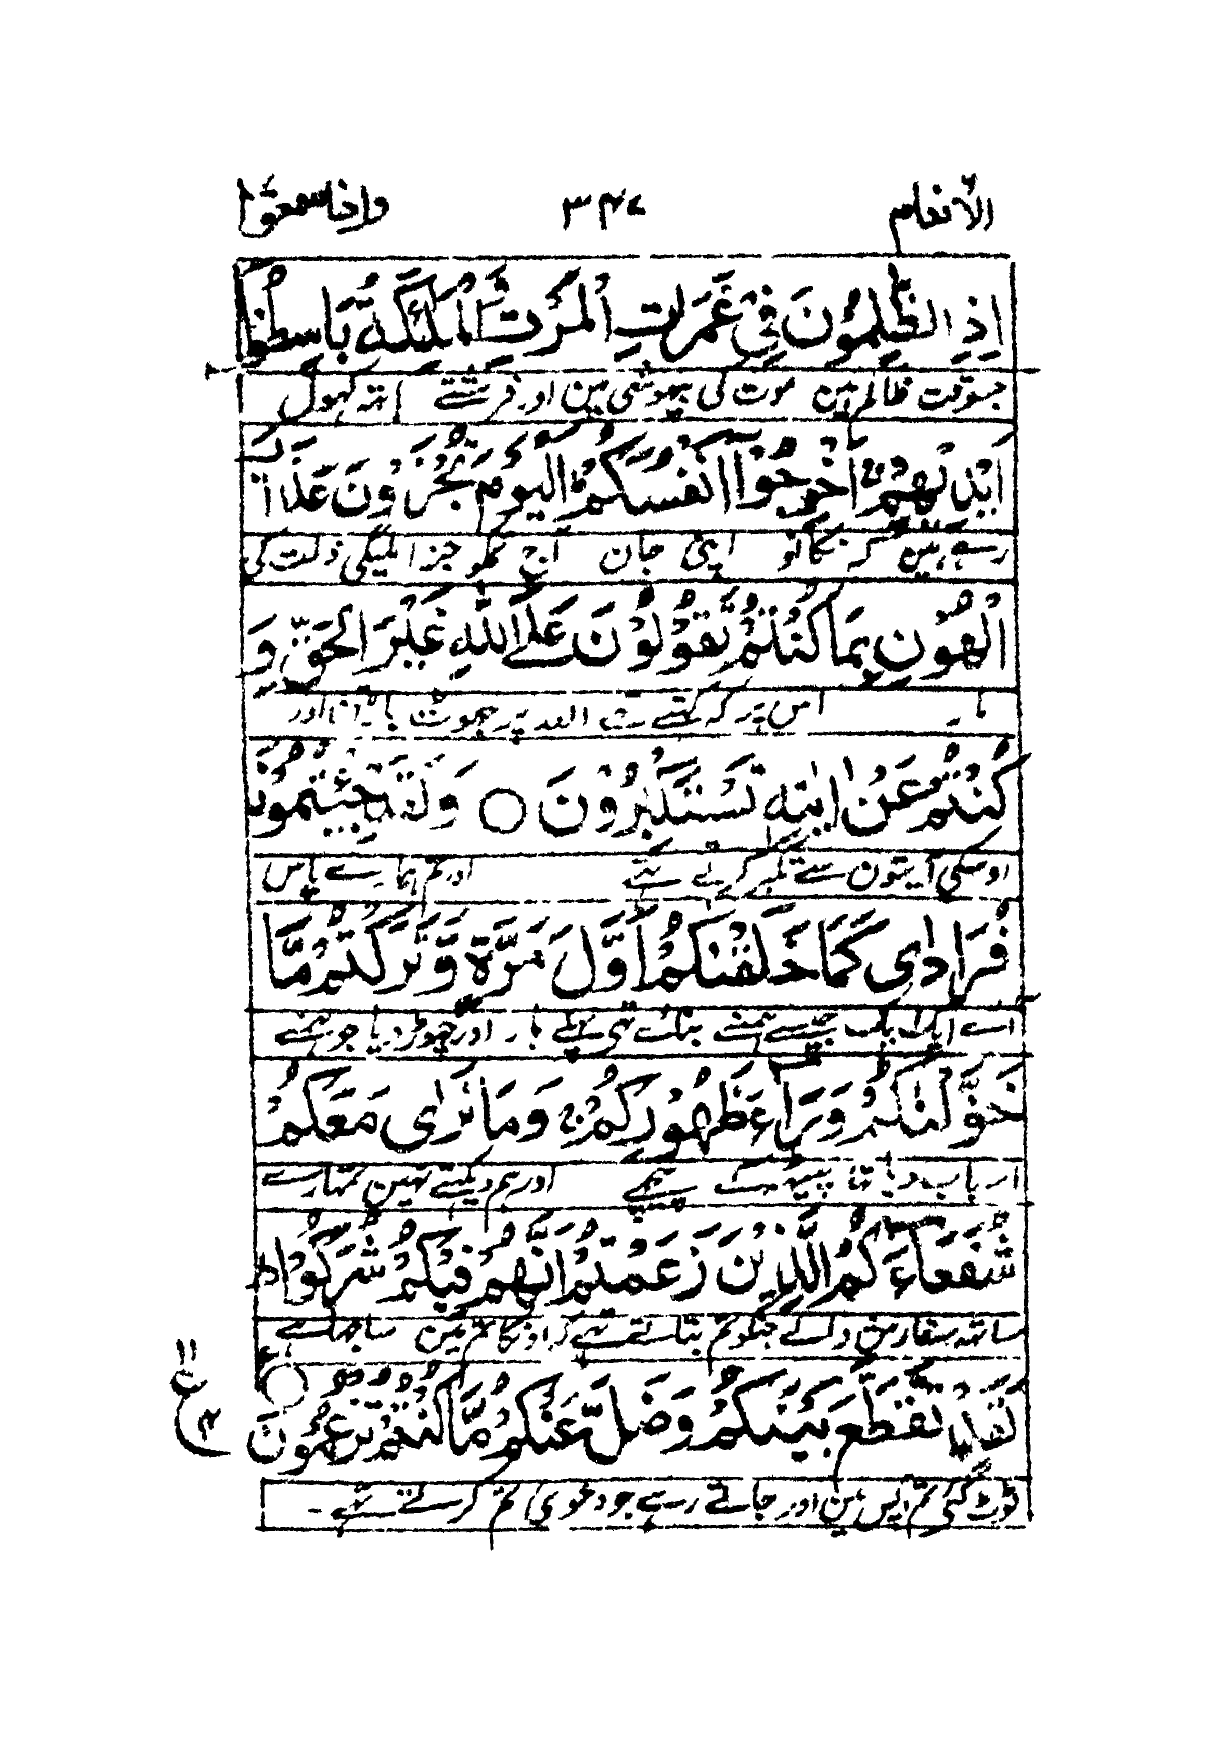 الانعام ۳۴۷ واذا سمعوا
اِذِ الظّٰلِمُوْنَ فِیْ غَمَرٰتِ الْمَوْتِ وَالْمَلٰٓئِكَةُ بَاسِطُوْٓا
جسوقت ظالم ہین موت کی بیہوشی مین اور فرشتے ہاتہ کہول
اَیْدِیْهِمْ اَخْرِجُوْٓا اَنْفُسَكُمْ اَلْیَوْمَ تُجْزَوْنَ عَذَابَ
رہے ہین کہ نکالو اپنی جان آج تمکو جزا ملیگی ذلت کی
الْهُوْنِ بِمَا كُنْتُمْ تَقُوْلُوْنَ عَلَی اللّٰهِ غَیْرَ الْحَقِّ وَ
اس پر کہ کہتے تہے اللہ پر جہوٹ باتین اور
كُنْتُمْ عَنْ اٰیٰتِهٖ تَسْتَكْبِرُوْنَ ○ وَلَقَدْ جِئْتُمُوْنَا
اوسکی آیتون سے تکبر کرتے تہے اور تم ہمارے پاس
فُرَادٰی كَمَا خَلَقْنٰكُمْ اَوَّلَ مَرَّةٍ وَّتَرَكْتُمْ مَّا
آے ایک ایک جیسے ہمنے بنائے تہے پہلے بار اور چہوڑ دیا جو ہمنے
خَوَّلْنٰكُمْ وَرَآءَ ظُهُوْرِكُمْ وَمَا نَرٰی مَعَكُمْ
اسباب دیا تہا پیٹہ کے پیچہے اور ہم دیکہتے نہین تمہارے
شُفَعَآءَكُمُ الَّذِیْنَ زَعَمْتُمْ اَنَّهُمْ فِیْكُمْ شُرَكٰٓؤُا
ساتہ سفارش والے جنکو تم بتاتے تہے کہ اونکا تم مین ساجہا ہے
لَقَدْ تَّقَطَّعَ بَیْنَكُمْ وَضَلَّ عَنْكُمْ مَّا كُنْتُمْ تَزْعُمُوْنَ ○
ٹوٹ گئے تم آپس مین اور جاتے رہے جو دعوی تم کرتے تہے ۔